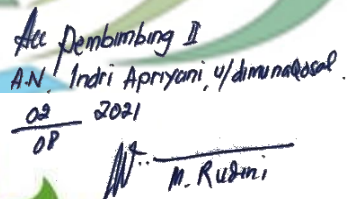 Acc Pembimbing II
A.N Indri Apriyani, u/dimunaqosal.
02 2021
08
M. Rusmi